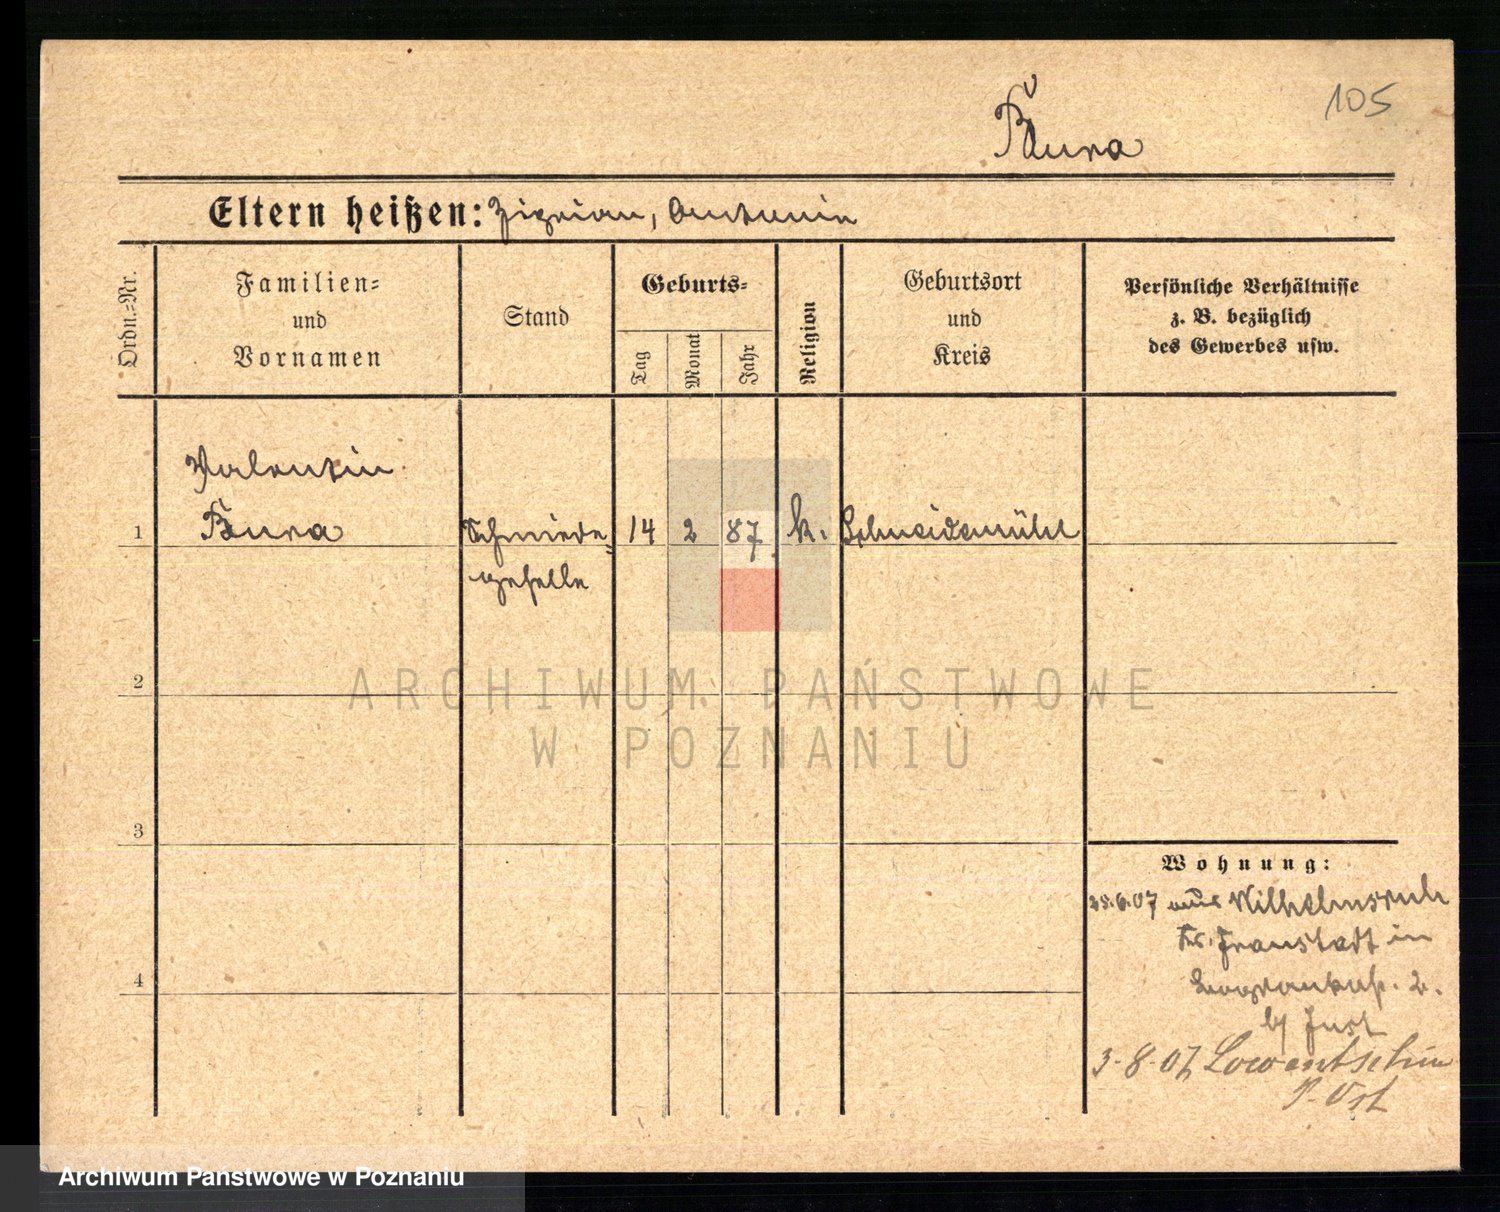 105
Bura
Eltern heißen: Ziprian, Antonin
Ordn.-Nr.
Familien-
und
Vornamen
Stand
Geburts-
Tag
Monat
Jahr
Religion
Geburtsort
und
Kreis
Persönliche Verhältnisse
z. B. bezüglich
des Gewerbes usw.
Valentin
1 Bura Schmiede- 14 2 87. k. Schneidemühl
geselle
2
3
4
Wohnung:
25.6.07 aus Wilhelmsruh
Kr. Fraustadt in
2.
b/ Just
3-8-07 Lowentschin
P. Ost
ARCHIWUM PAŃSTWOWE
W POZNANIU
Archiwum Państwowe w Poznaniu